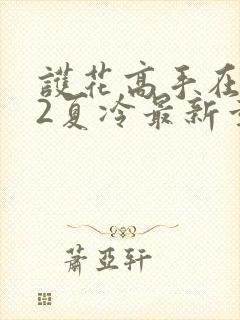 護花高手在
2夏冷最新
蕭亞軒